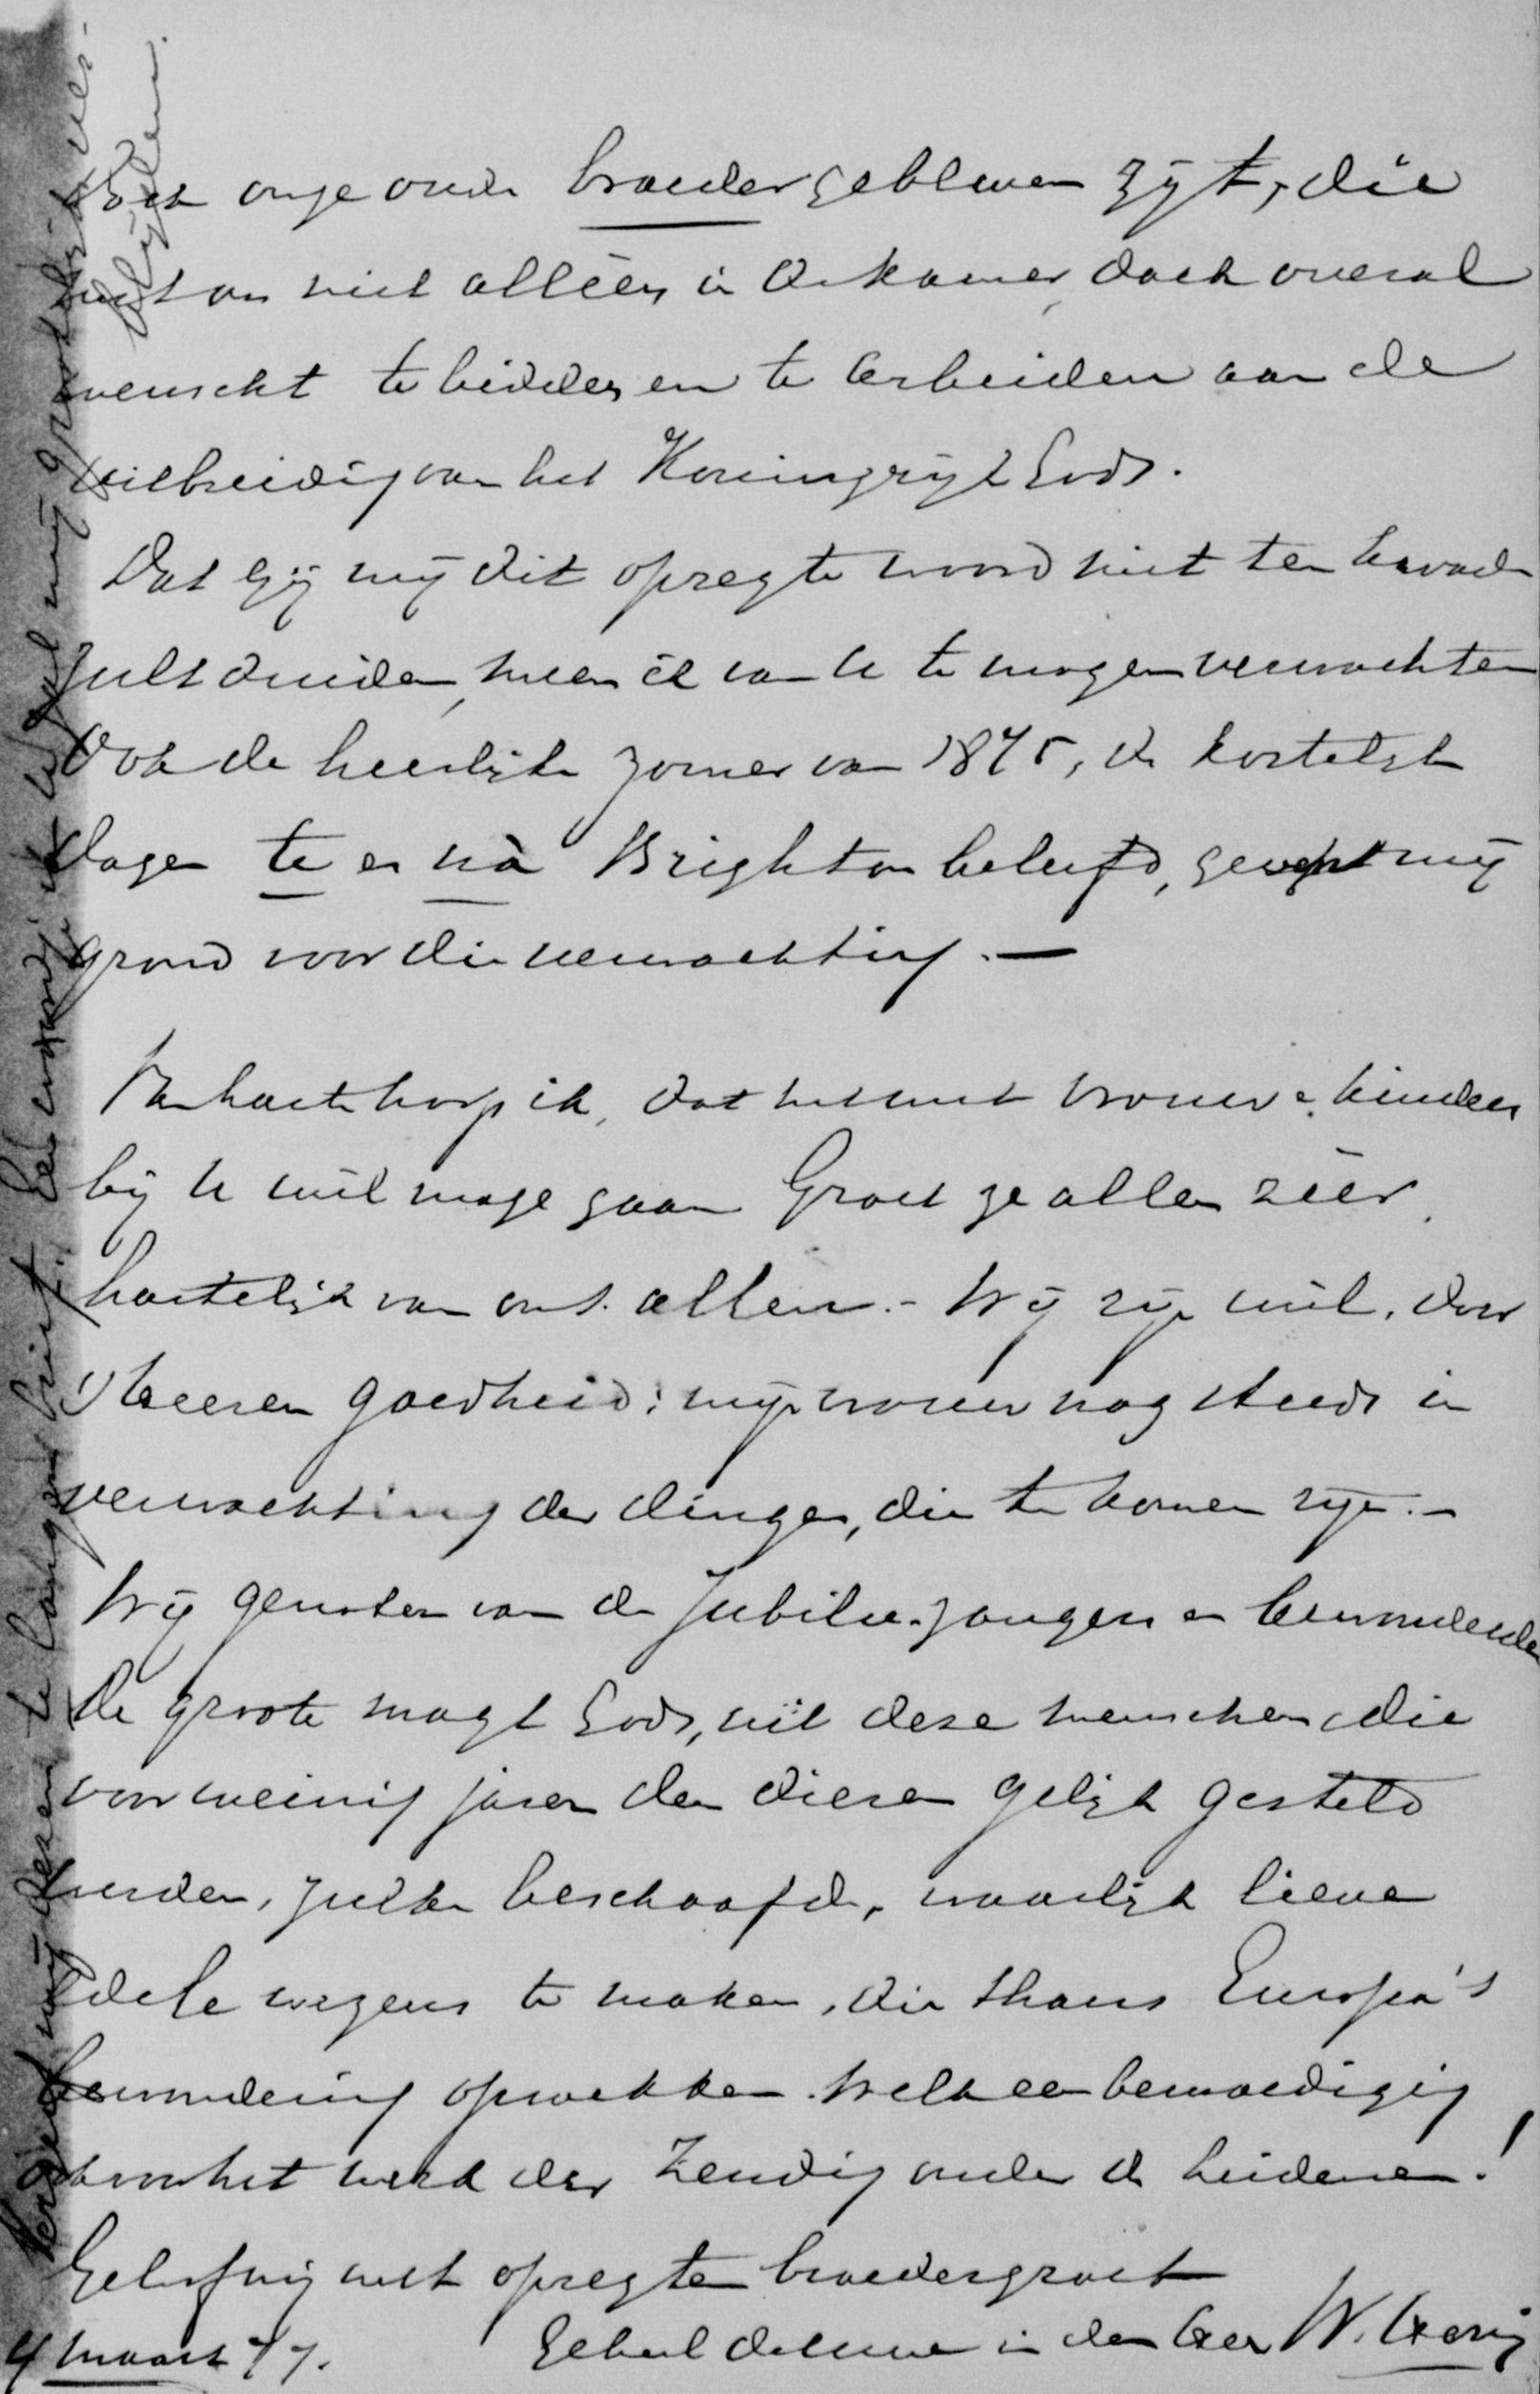 onze oude broeder gebleven zijt, die
met ons niet alléén in de kamer, doch overal
wenscht te bidden en te arbeiden aan de
uitbreiding van het Koningrijk Gods.
Dat gij mij dit opregte woord niet ten kwade
zult duiden, meen ik van U te mogen verwachten
Ook de heerlijke zomer van 1875, de kostelijke
dagen te en nà Brighton beleefd, geven mij
grond voor die verwachting. —
Van harte hoop ik, dat het met vrouw & kinderen
bij U wèl moge gaan Groet ze allen zéér
hartelijk van ons allen. - Wij zijn wèl, door
's Heeren goedheid: mijn vrouw nog steeds in
verwachting der dingen, die te komen zijn. -
Wij genoten van de Jubilee-zangers en bewonderden
de groote magt Gods, uit deze menschen die
voor weinig jaren den dieren gelijk gesteld
werden, zulke beschaafde, waarlijk lieve
edele wezens te maken, die thans Europa's
bewondering opwekken. Welk een bemoediging
ook voor het werk der Zending onder de heidenen!
Geloof mij met opregte broedergroet
Geheel de Uwe in den Heer W.
4 maart 77.
Vergeef mij dezen te langen brief. Een antwoord zal mij
blijden.